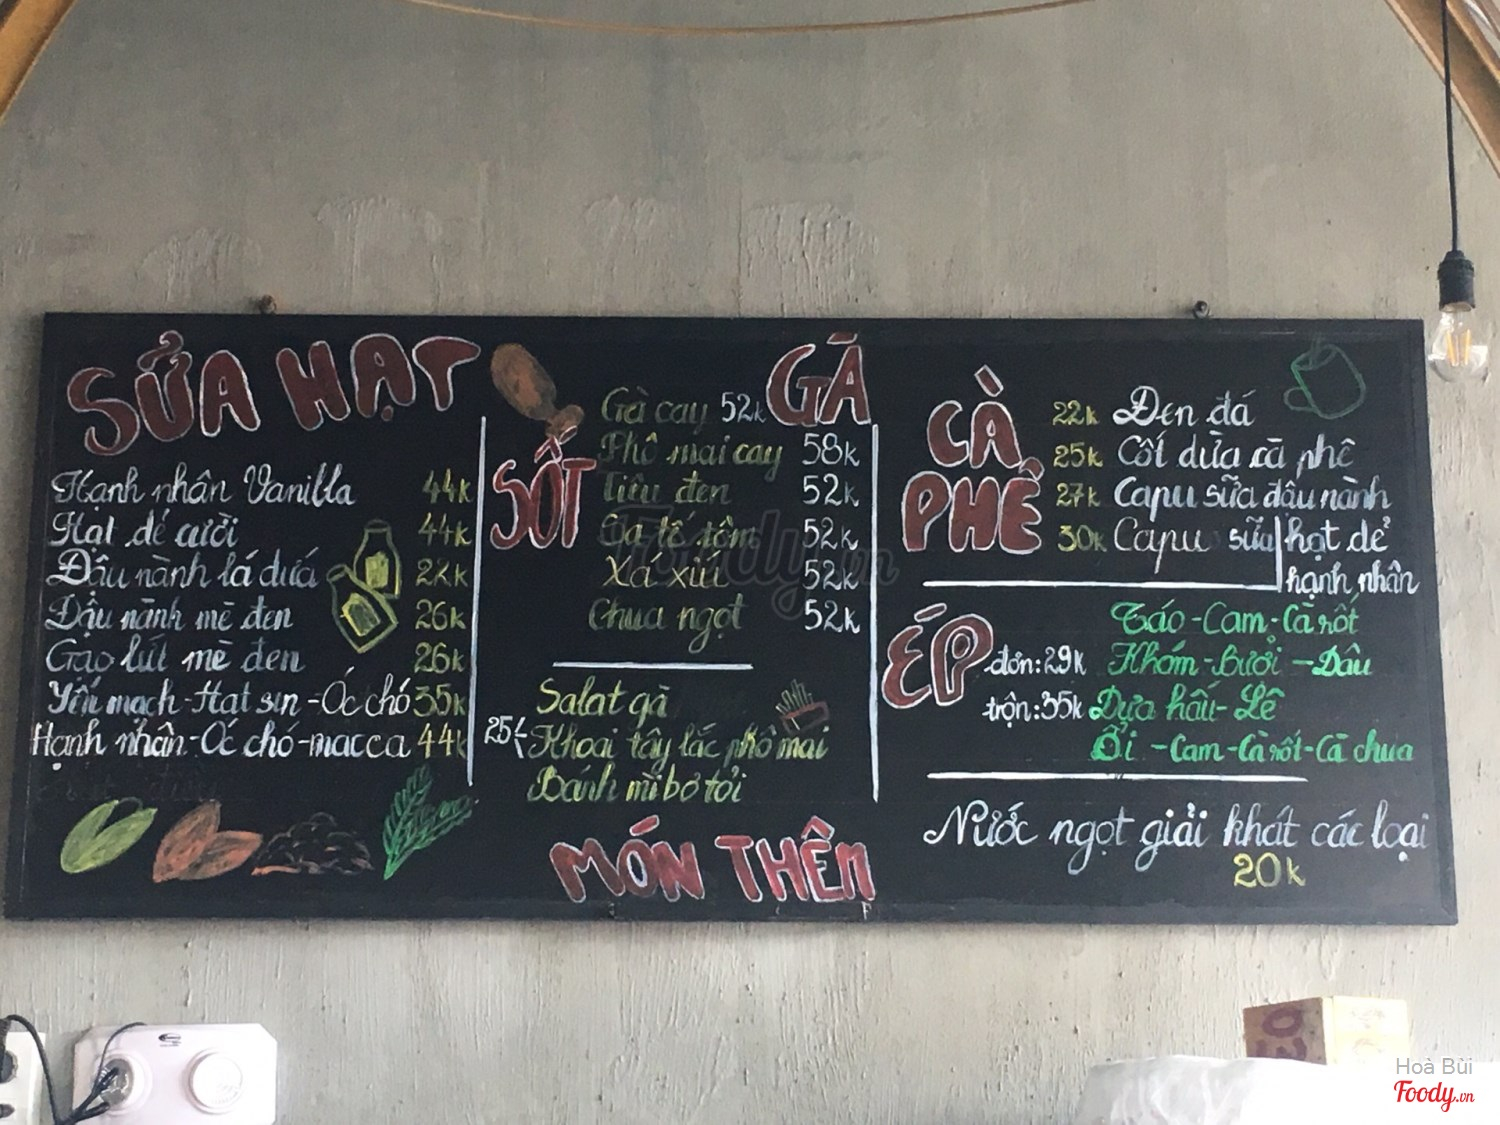 SỮA HẠT
Hạnh nhân Vanilla 44k
Hạt dẻ cười 44k
Đậu nành lá dứa 22k
Đậu nành mè đen 26k
Gạo lứt mè đen 26k
Yến mạch - Hạt sen - Óc chó 35k
Hạnh nhân - Óc chó - macca 44k
GÀ
SỐT
Gà cay 52k
Phô mai cay 58k
Tiêu đen 52k
Sa tế tôm 52k
Xá xíu 52k
Chua ngọt 52k
Salat gà
25k Khoai tây lắc phô mai
Bánh mì bơ tỏi
MÓN THÊM
CÀ
PHÊ
22k Đen đá
25k Cốt dừa cà phê
27k Capu sữa đậu nành
30k Capu sữa hạt dẻ
hạnh nhân
ÉP
Táo - Cam - Cà rốt
đơn: 29k Khóm - Bưởi - Dâu
trộn: 35k Dưa hấu - Lê
Ổi - Cam - Cà rốt - Cà chua
Nước ngọt giải khát các loại
20k
Foody.vn
Hoà Bùi
Foody.vn